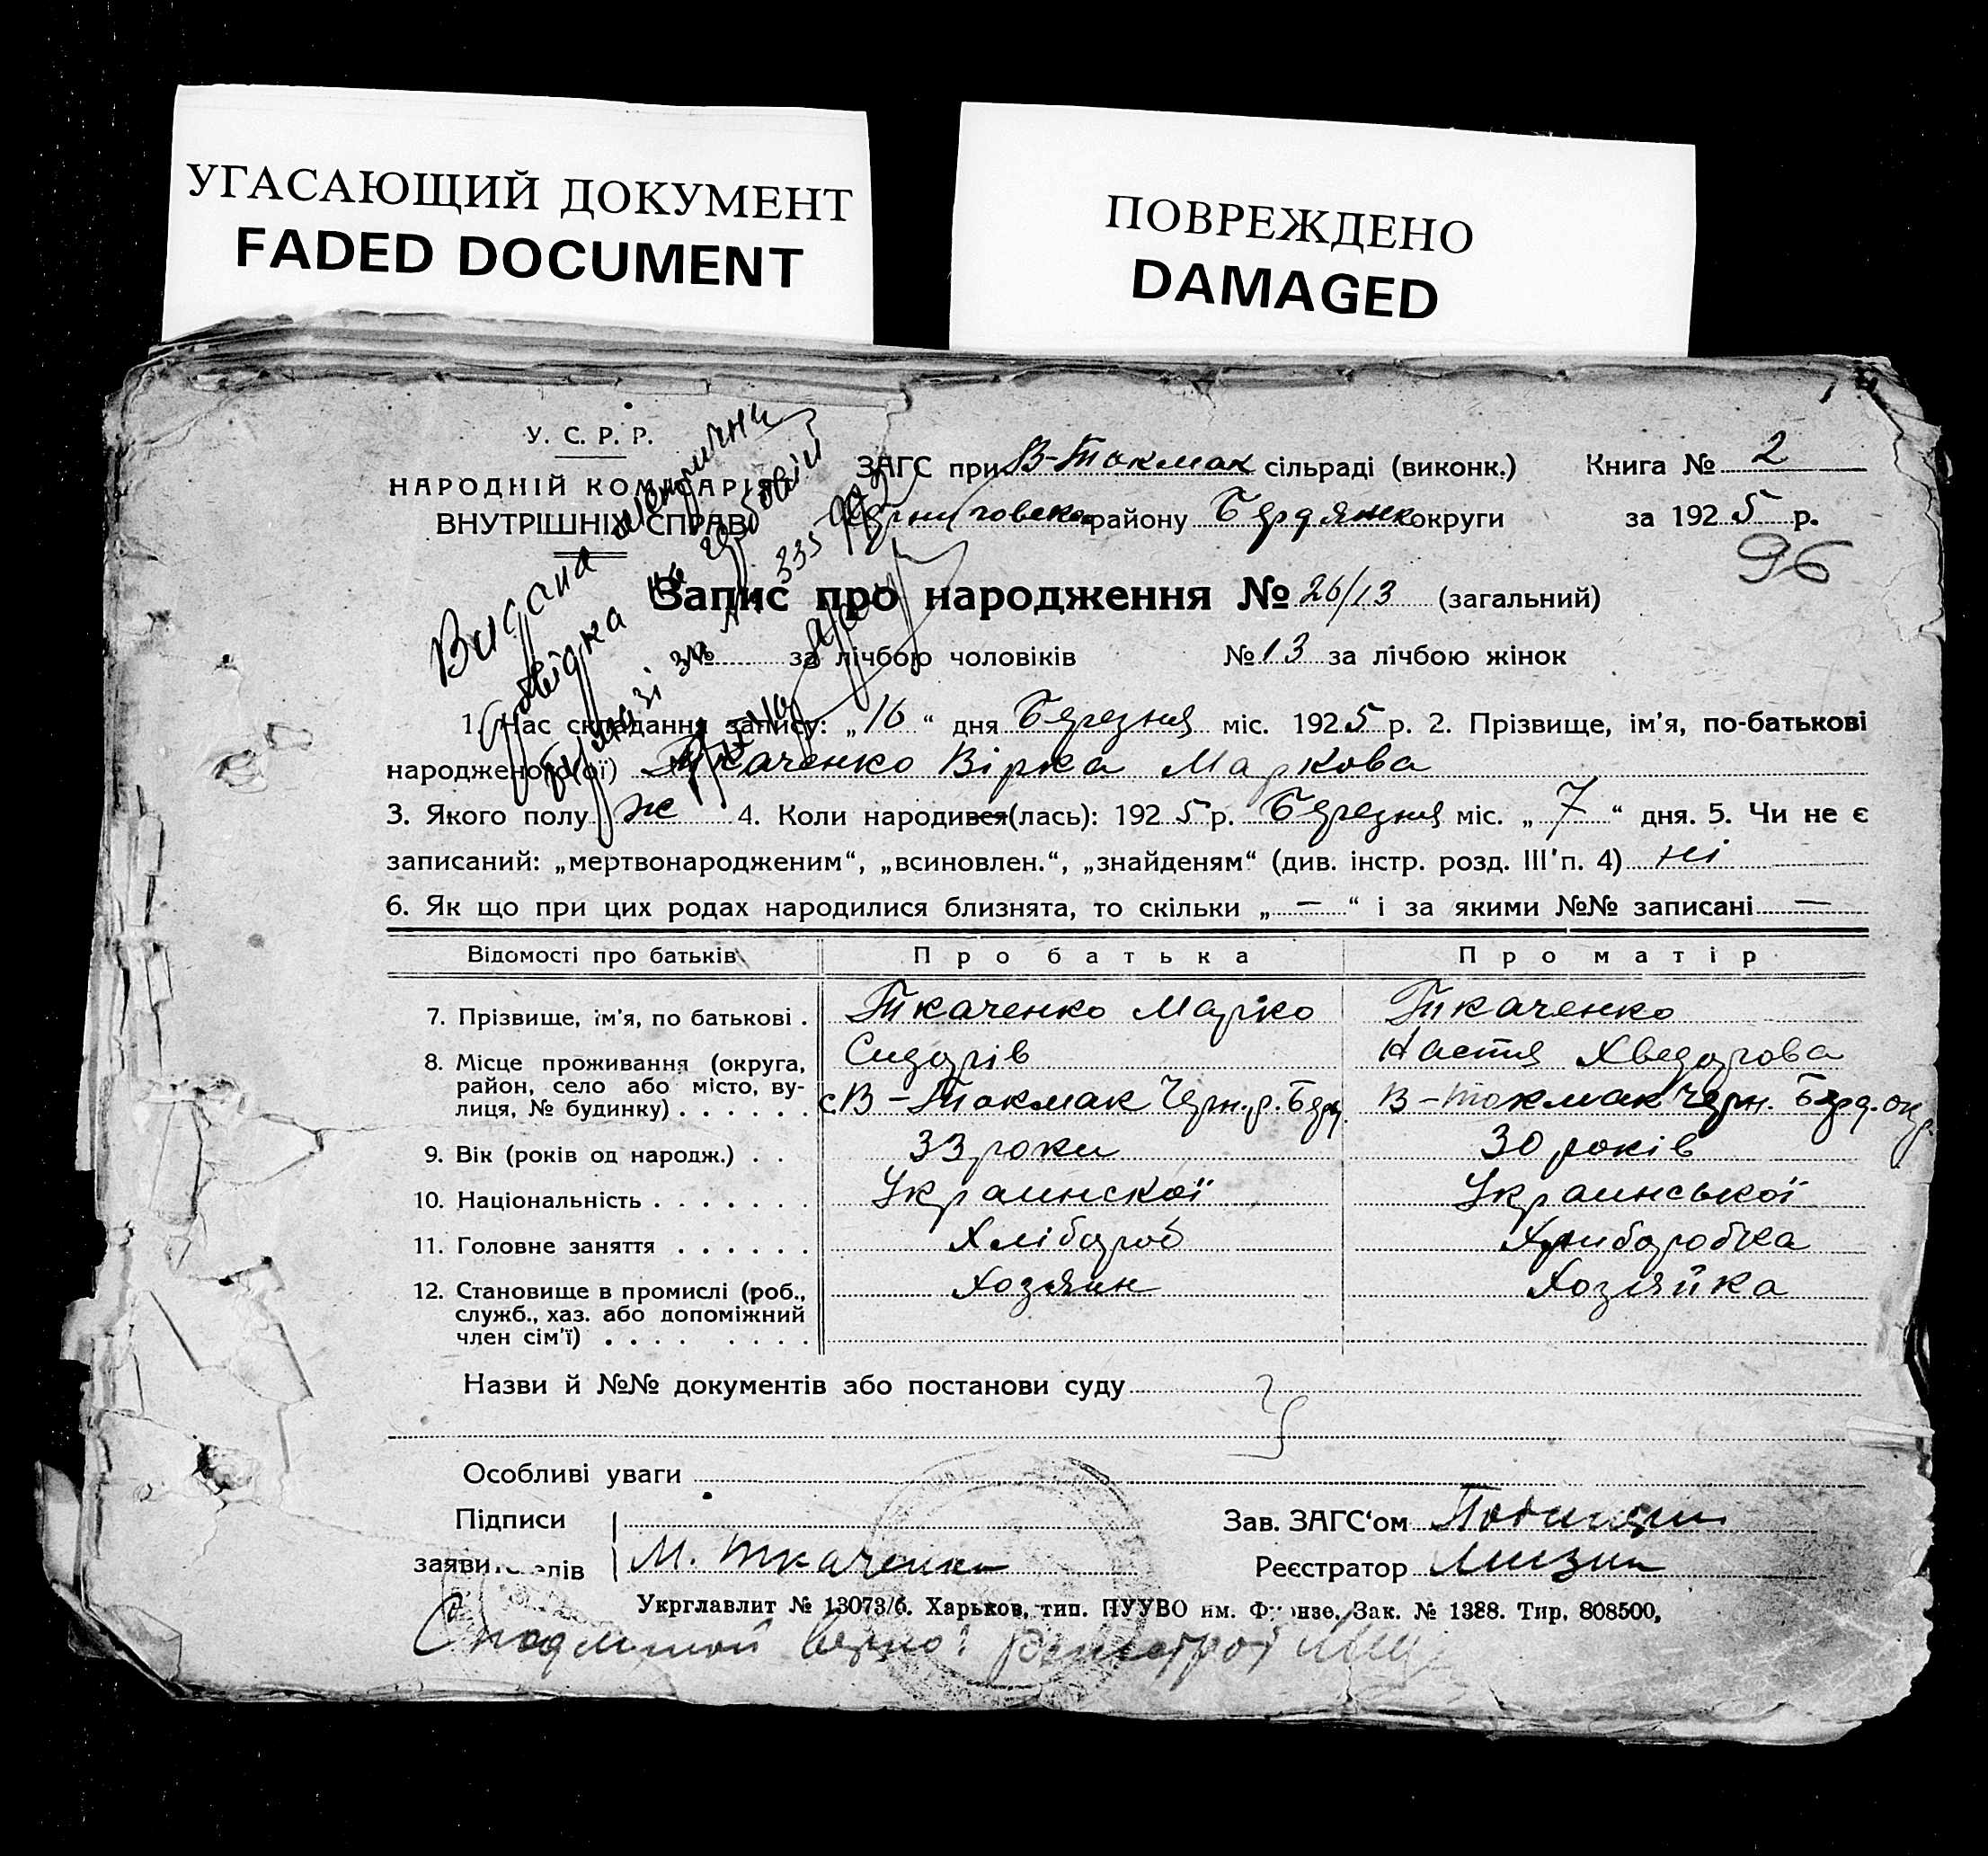 УГАСАЮЩИЙ ДОКУМЕНТ
FADED DOCUMENT
ПОВРЕЖДЕНО
DAMAGED
У. С. Р. Р.
НАРОДНІЙ КОМІСАРІЯТ
ВНУТРІШНІХ СПРАВ
Видана
на гербовій
бумазі за № 335
ЗАГС при В-Токмак сільраді (виконк.) Книга № 2
району Бердянс округи за 1925 р.
96
Запис про народження № 26/13 (загальний)
№ за лічбою чоловіків № 13 за лічбою жінок
1. Час складання запису: „16“ дня Березня міс. 1925 р. 2. Прізвище, ім'я, по-батькові
народженого(ої) Ткаченко Вірка Маркова
3. Якого полу ж 4. Коли народився(лась): 1925 р. Березня міс. „7“ дня. 5. Чи не є
записаний: „мертвонародженим“, „всиновлен.“, „знайденям“ (див. інстр. розд. III п. 4) ні
6. Як що при цих родах народилися близнята, то скільки „—“ і за якими №№ записані —
Відомості про батьків Про батька Про матір
7. Прізвище, ім'я, по батькові . Ткаченко Марко Ткаченко
Сидорів Настя Хведорова
8. Місце проживання (округа,
район, село або місто, ву-
лиця, № будинку) . . . . . . с В-Токмак Черн. р. Берд. В-Токмак Черн. Берд. окр.
9. Вік (років од народж.) . . 33 роки 30 років
10. Національність . . . . . . . Украинскої Украинської
11. Головне заняття . . . . . . Хлібороб Хлиборобка
12. Становище в промислі (роб.,
служб., хаз. або допоміжний
член сім'ї) . . . . . . . . Хозяин Хозяйка
Назви й №№ документів або постанови суду
Особливі уваги
Підписи
заяви елів М. Ткаченко
Зав. ЗАГС'ом
Реєстратор
Укрглавлит № 13073/б. Харьков, тип. ПУУВО им. Фрунзе. Зак. № 1388. Тир. 808500.
С подлинной верно: